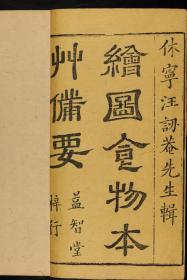 休寧汪訒菴先生輯
繪圖食物本
艸備要
益智堂
梓行